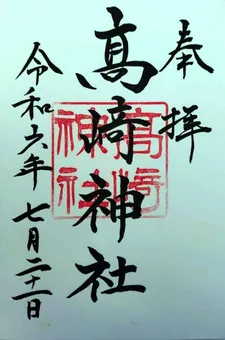 奉拝
髙﨑神社
高崎神社
令和六年 七月二十一日